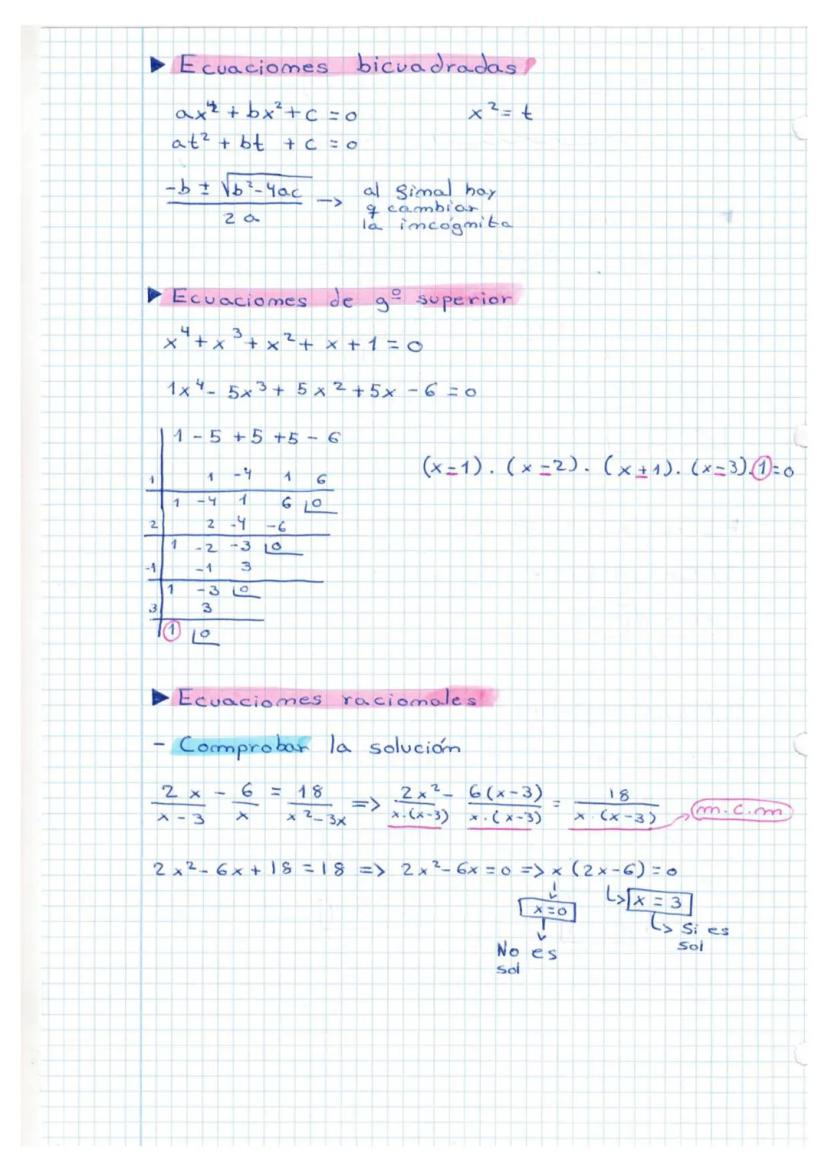 ▶ Ecuaciones bicuadradas
ax⁴ + bx² + c = 0    x² = t
at² + bt + c = 0
(-b ± √(b²-4ac)) / 2a → al final hay
q cambiar
la incógnita
▶ Ecuaciones de gº superior
x⁴ + x³ + x² + x + 1 = 0
1x⁴ - 5x³ + 5x² + 5x - 6 = 0
1 - 5 + 5 + 5 - 6
1 | 1 -4 1 6
1 -4 1 6 |0
2 | 2 -4 -6
1 -2 -3 |0
-1 | -1 3
1 -3 |0
3 | 3
1 |0
(x-1) . (x-2) . (x+1) . (x-3) . 1 = 0
▶ Ecuaciones racionales
- Comprobar la solución
2x/(x-3) - 6/x = 18/(x²-3x) => 2x²/(x.(x-3)) - 6(x-3)/(x.(x-3)) = 18/(x.(x-3)) → m.c.m
2x² - 6x + 18 = 18 => 2x² - 6x = 0 => x(2x-6) = 0
x=0    x = 3
No es sol    Si es sol